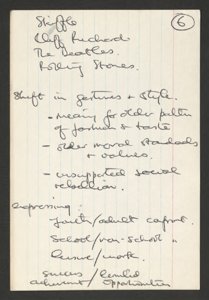 6
Skiffle
Cliff Richard
The Beatles.
Rolling Stones.
Shift in gestures + style.
- meaning for older pattern
of fashion & taste
- older moral standards
+ values.
- unsupported social
rebellion.
expressing:
youth/adult
school/non-school "
leisure/work.
success / limited
achievement / opportunities